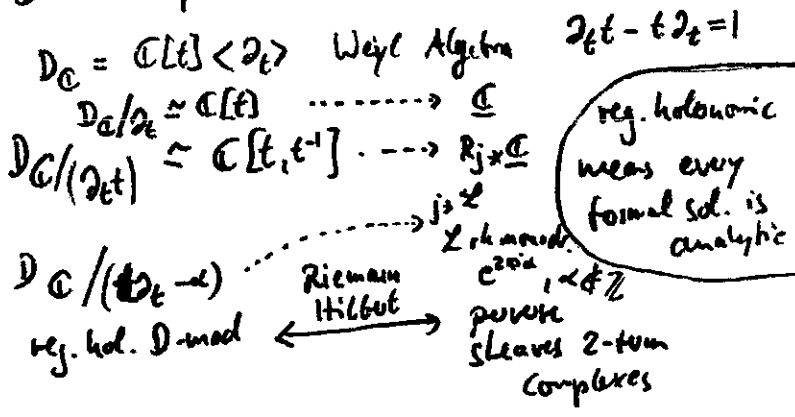 D_ℂ = ℂ[t]<∂_t> Weyl Algebra ∂_t t - t∂_t = 1
D_ℂ/∂_t ≃ ℂ[t] ⇢ ℂ
D_ℂ/(∂_t t) ≃ ℂ[t,t⁻¹] ⇢ Rj_*ℂ
reg. holonomic
means every
formal sol. is
analytic
j_* ℒ
ℒ rk monodr.
e^{2πiα}, α∉ℤ
D_ℂ/(t∂_t - α)
Riemann
Hilbert
reg. hol. D-mod ⟷ perverse
sheaves 2-term
complexes